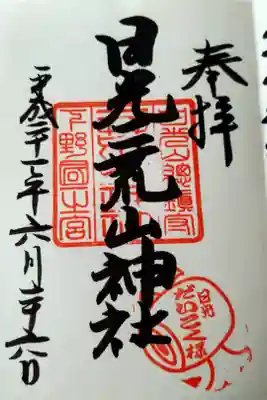 奉拝
日光二荒山神社
平成二十一年六月二十六日
日光山總鎮守
下野國一之宮
日光
だいこく様